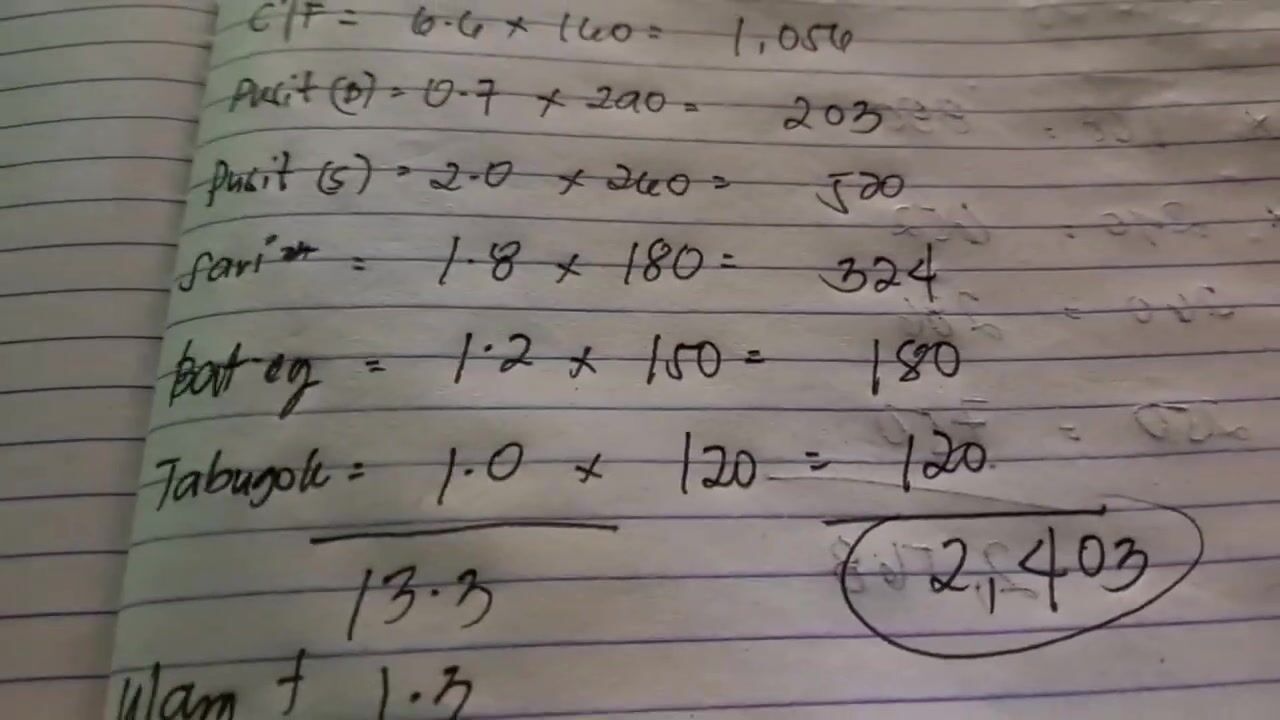 C/F = 6.6 × 160 = 1,056
Pusit (B) = 0.7 × 290 = 203
Pusit (S) = 2.0 × 260 = 520
= 1.8 × 180 = 324
= 1.2 × 150 = 180
Tabugok = 1.0 × 120 = 120
13.3 2,403
Ulam + 1.3